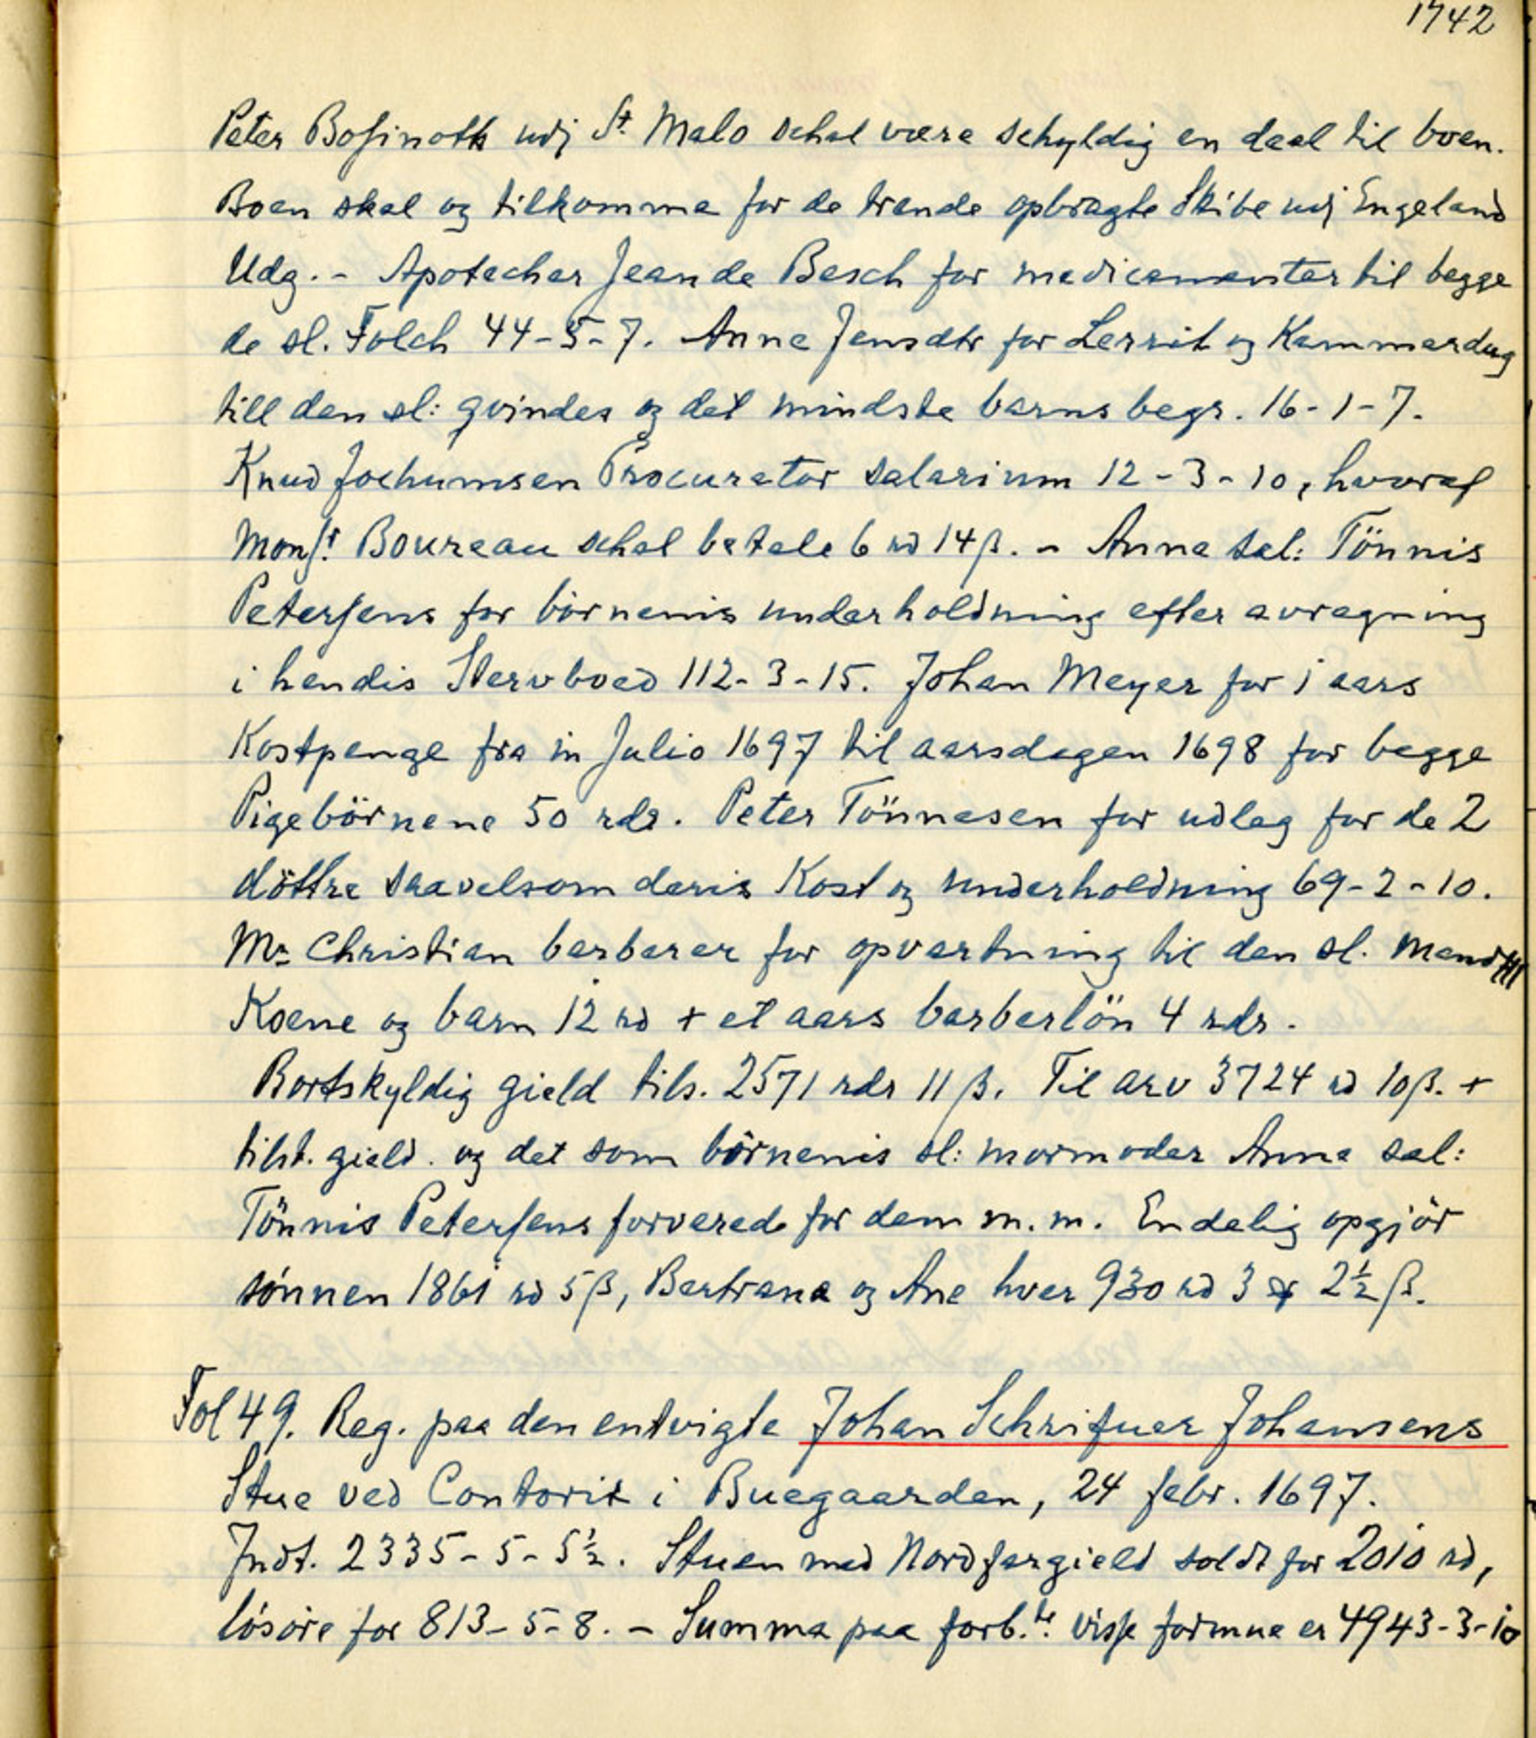 1742
Peter Bosinoth udj St. Malo schal være schyldig en deel til boen.
Boen skal og tilkomme for de trende opbragte Skibe udj Engeland
Udg. - Apotecher Jean de Besch for medicamenter til begge
de sl. Folch 44-5-7. Anne Jensdtr for Lerrit og Kammerdug
till den sl: qvindes og det mindste barns begr. 16-1-7.
Knud Jochumsen Procurator salarium 12-3-10, hvoraf
Monsr. Boureau schal betale 6 rd 14 ß. - Anna sal: Tönnis
Petersens for börnenis underholdning efter avregning
i hendis Stervboed 112-3-15. Johan Meyer for 1 aars
Kostpenge fra in Julio 1697 til aarsdagen 1698 for begge
Pigebörnene 50 rdr. Peter Tönnesen for udlag for de 2
döttre saavelsom deris Kost og underholdning 69-2-10.
Mr Christian barberer for opvartning til den sl. Mand
Kone og barn 12 rd + et aars barberlön 4 rdr.
Bortskyldig gield tils. 2571 rdr 11 ß. Til arv 3724 rd 10 ß. +
tilst. gield. og det som börnenis sl: mormoder Anne sal:
Tönnis Petersens forverede for dem m.m. Endelig opgjör
sönnen 1861 rd 5 ß, Bertrana og Ane hver 930 rd 3 2½ ß.
Fol 49. Reg. paa den entvigte Johan Schrifuer Johansens
Stue ved Contorit i Buegaarden, 24 febr. 1697.
Indt. 2335-5-5½. Stuen med Nordfargield soldt for 2010 rd,
lösöre for 813-5-8. - Summa paa forb.te visse formue er 4943-3-10